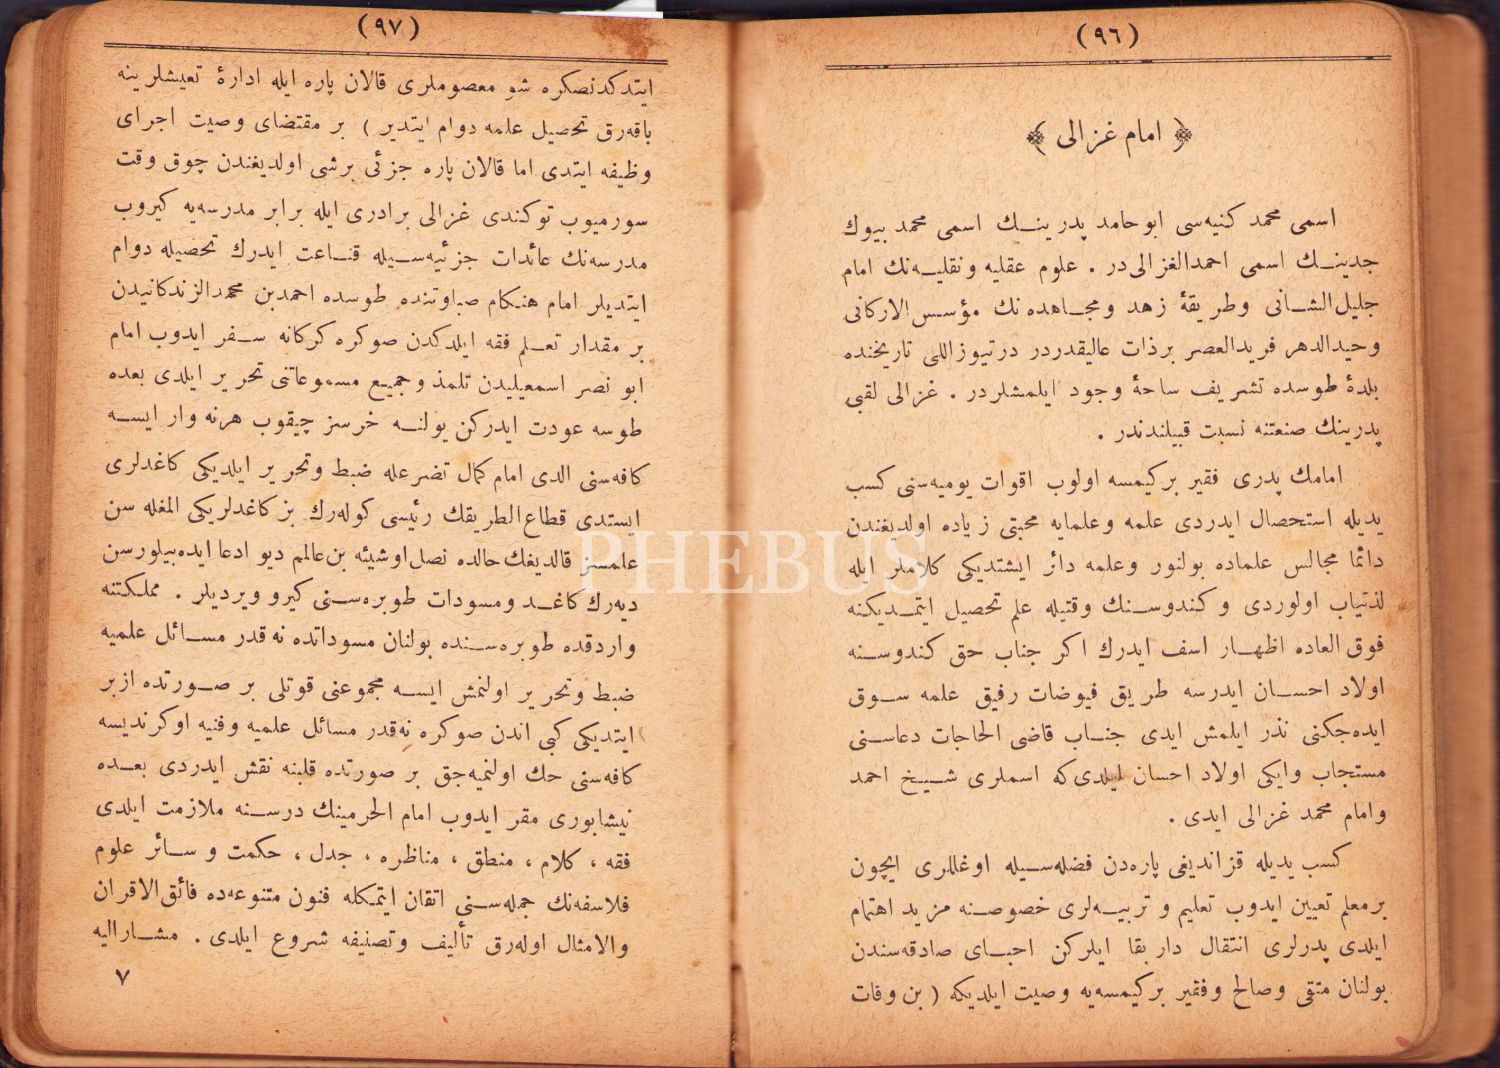 (٩٦)
﴿ امام غزالى ﴾
اسمى محمد كنيه‌سى ابوحامد پدرينك اسمى محمد بيوك
جدينك اسمى احمدالغزالى‌در . علوم عقليه ونقليه‌نك امام
جليل‌الشانى وطريقهٔ زهد ومجاهده‌نك مؤسس‌الاركانى
وحيدالدهر فريدالعصر برذات عاليقدردر درتيوزاللى تاريخنده
بلدهٔ طوسده تشريف ساحهٔ وجود ايلمشلردر . غزالى لقبى
پدرينك صنعتنه نسبت قبيلندندر .
امامك پدرى فقير بركيمسه اولوب اقوات يوميه‌سنى كسب
يديله استحصال ايدردى علمه وعلمايه محبتى زياده اولديغندن
دائما مجالس علماده بولنور وعلمه دائر ايشتديكى كلاملر ايله
لذتياب اولوردى وكندوسنك وقتيله علم تحصيل ايتمديكنه
فوق العاده اظهار اسف ايدرك اكر جناب حق كندوسنه
اولاد احسان ايدرسه طريق فيوضات رفيق علمه سوق
ايده‌جكنى نذر ايلمش ايدى جناب قاضى الحاجات دعاسنى
مستجاب وايكى اولاد احسان ايلدى‌كه اسملرى شيخ احمد
وامام محمد غزالى ايدى .
كسب يديله قزانديغى پاره‌دن فضله‌سيله اوغللرى ايچون
برمعلم تعيين ايدوب تعليم و تربيه‌لرى خصوصنه مزيد اهتمام
ايلدى پدرلرى انتقال داربقا ايلركن احباى صادقه‌سندن
بولنان متقى وصالح وفقير بركيمسه‌يه وصيت ايلديكه ( بن وفات
(٩٧)
ايتدكدنصكره شو معصوملرى قالان پاره ايله ادارهٔ تعيشلرينه
باقه‌رق تحصيل علمه دوام ايتدير ) بر مقتضاى وصيت اجراى
وظيفه ايتدى اما قالان پاره جزئى برشى اولديغندن چوق وقت
سورميوب توكندى غزالى برادرى ايله برابر مدرسه‌يه كيروب
مدرسه‌نك عائدات جزئيه‌سيله قناعت ايدرك تحصيله دوام
ايتديلر امام هنكام صباوتنده طوسده احمدبن محمدالزندكانيدن
بر مقدار تعلم فقه ايلدكدن صوكره كركانه سفر ايدوب امام
ابو نصر اسمعيليدن تلمذ وجميع مسموعاتنى تحرير ايلدى بعده
طوسه عودت ايدركن يولنه خرسز چيقوب هرنه وار ايسه
كافه‌سنى الدى امام كمال تضرعله ضبط وتحرير ايلديكى كاغدلرى
ايستدى قطاع‌الطريقك رئيسى كوله‌رك بز كاغدلريكى المغله سن
علمسز قالديغك حالده نصل‌اوشيئه بن‌عالمم ديو ادعا ايده‌بيلورسن
ديه‌رك كاغد ومسودات طوبره‌سنى كيرو ويرديلر . مملكتنه
واردقده طوبره‌سنده بولنان مسوداتده نه‌قدر مسائل علميه
ضبط وتحرير اولنمش ايسه مجموعنى قوتلى بر صورتده ازبر
ايتديكى كبى اندن صوكره نه‌قدر مسائل علميه وفنيه اوكرنديسه
كافه‌سنى حك اولنميه‌جق بر صورتده قلبنه نقش ايدردى بعده
نيشابورى مقر ايدوب امام الحرمينك درسنه ملازمت ايلدى
فقه ، كلام ، منطق ، مناظره ، جدل ، حكمت و سائر علوم
فلاسفه‌نك جمله‌سنى اتقان ايتمكله فنون متنوعه‌ده فائق‌الاقران
والامثال اوله‌رق تأليف وتصنيفه شروع ايلدى . مشاراليه
٧
PHEBUS